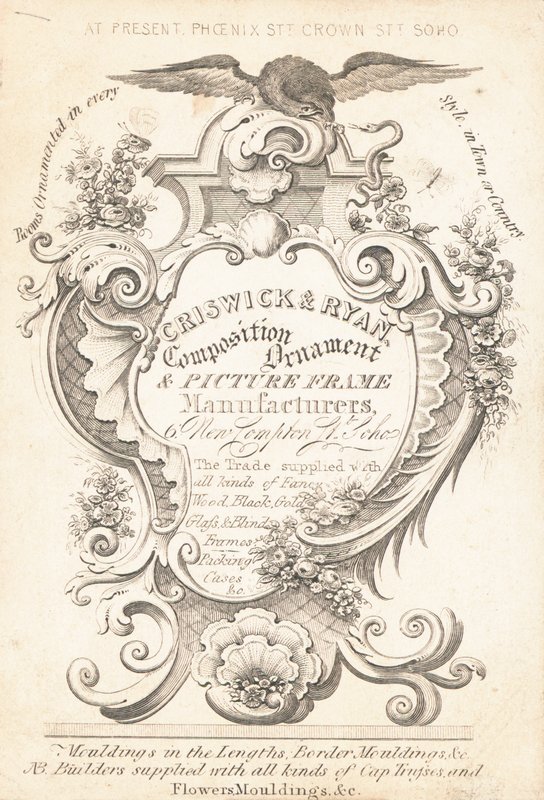 AT PRESENT, PHŒNIX STT CROWN STT SOHO
Rooms Ornamented in every
Style, in Town or Country.
CRISWICK & RYAN,
Composition
Ornament
& PICTURE FRAME
Manufacturers,
6. New Compton St. Soho
The Trade supplied with
all kinds of Fancy
Wood, Black, Gold
Glaſs, & Blind
Frames
Packing
Cases
&c.
Mouldings in the Lengths, Border Mouldings, &c.
NB. Builders supplied with all kinds of Cap Truſses, and
Flowers Mouldings, &c.